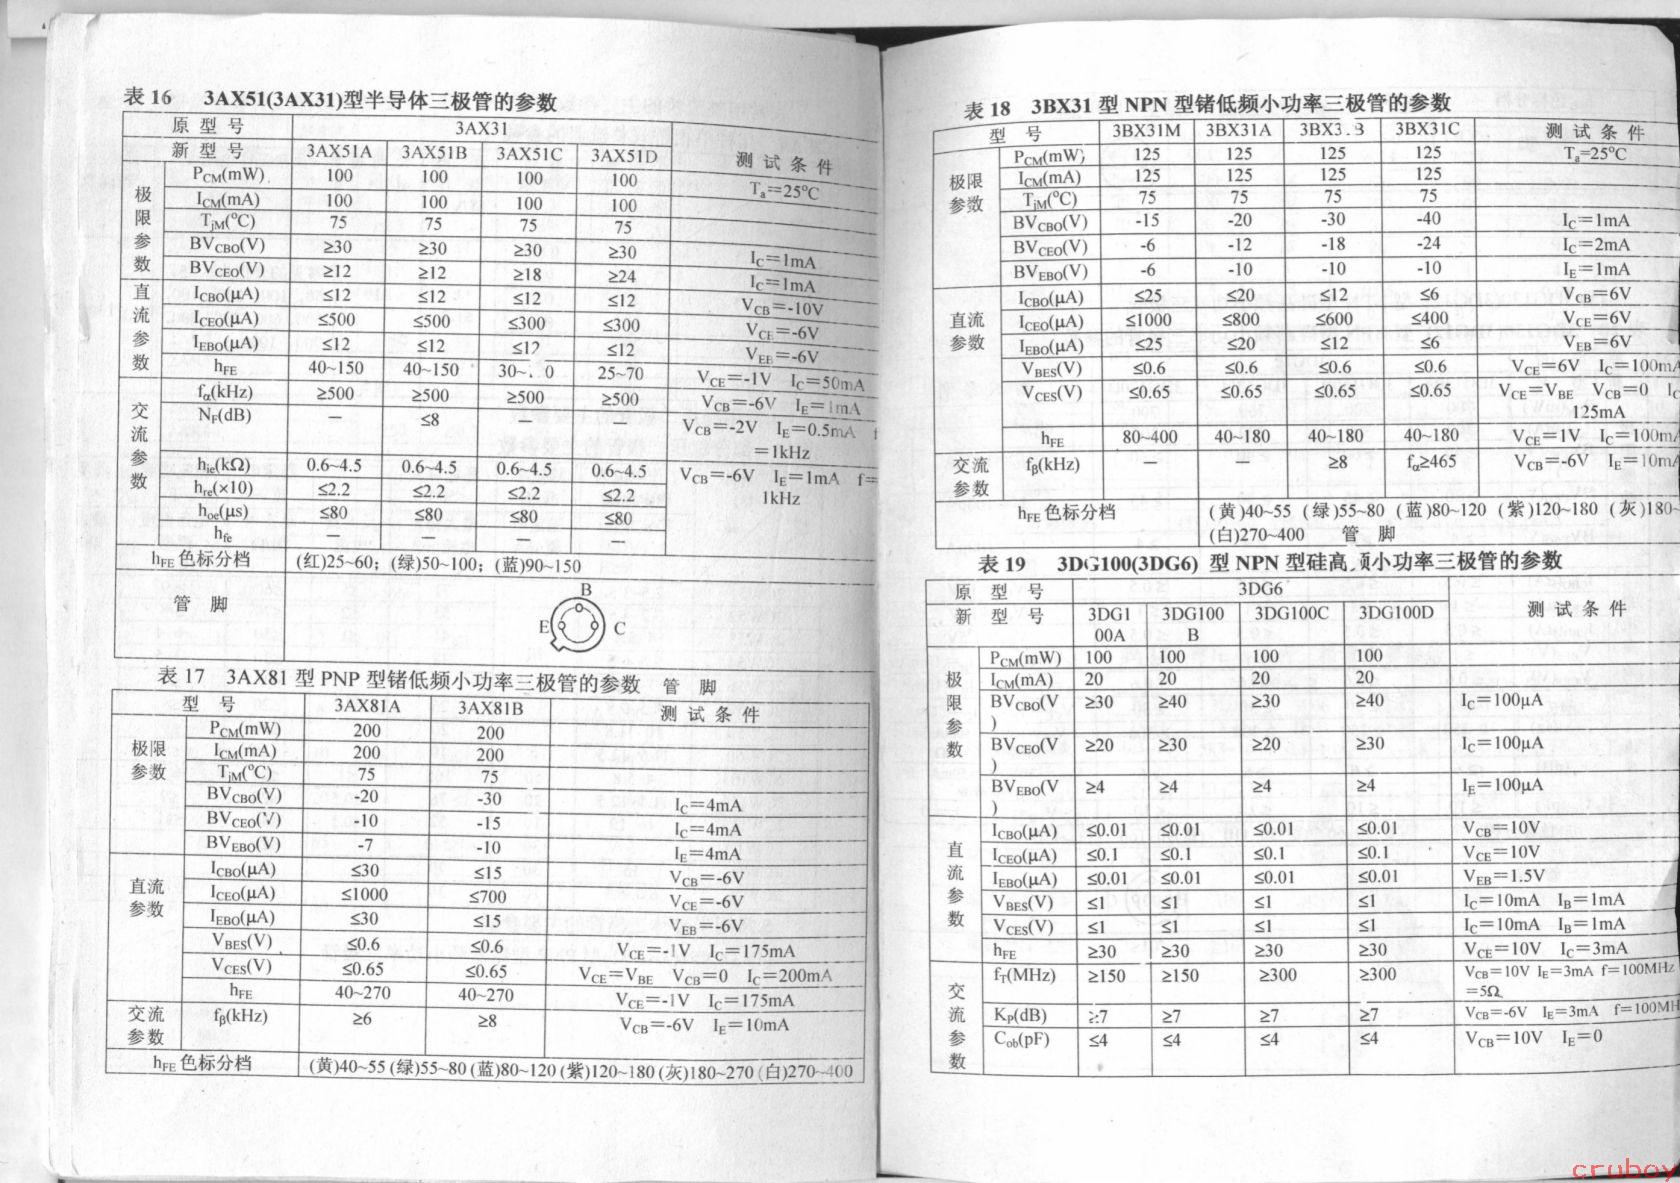 表 16 3AX51(3AX31)型半导体三极管的参数
原 型 号 3AX31 测 试 条 件
新 型 号 3AX51A 3AX51B 3AX51C 3AX51D
极限参数 PCM(mW) 100 100 100 100 Ta=25℃
ICM(mA) 100 100 100 100
TjM(℃) 75 75 75 75
BVCBO(V) ≥30 ≥30 ≥30 ≥30 IC=1mA
BVCEO(V) ≥12 ≥12 ≥18 ≥24 IC=1mA
直流参数 ICBO(μA) ≤12 ≤12 ≤12 ≤12 VCB=-10V
ICEO(μA) ≤500 ≤500 ≤300 ≤300 VCE=-6V
IEBO(μA) ≤12 ≤12 ≤12 ≤12 VEE=-6V
hFE 40~150 40~150 30~ 25~70 VCE=-1V IC=50mA
交流参数 fα(kHz) ≥500 ≥500 ≥500 ≥500 VCB=-6V IE=1mA
NF(dB) — ≤8 — — VCB=-2V IE=0.5mA f
=1kHz
hie(kΩ) 0.6~4.5 0.6~4.5 0.6~4.5 0.6~4.5 VCB=-6V IE=1mA f=
hre(×10) ≤2.2 ≤2.2 ≤2.2 ≤2.2 1kHz
hoe(μs) ≤80 ≤80 ≤80 ≤80
hfe — — — —
hFE色标分档 (红)25~60; (绿)50~100; (蓝)90~150
管 脚 B
E C
表 17 3AX81 型 PNP 型锗低频小功率三极管的参数 管 脚
型 号 3AX81A 3AX81B 测 试 条 件
极限参数 PCM(mW) 200 200
ICM(mA) 200 200
TjM(℃) 75 75
BVCBO(V) -20 -30 IC=4mA
BVCEO(V) -10 -15 IC=4mA
BVEBO(V) -7 -10 IE=4mA
直流参数 ICBO(μA) ≤30 ≤15 VCB=-6V
ICEO(μA) ≤1000 ≤700 VCE=-6V
IEBO(μA) ≤30 ≤15 VEB=-6V
VBES(V) ≤0.6 ≤0.6 VCE=-1V IC=175mA
VCES(V) ≤0.65 ≤0.65 VCE=VBE VCB=0 IC=200mA
hFE 40~270 40~270 VCE=-1V IC=175mA
交流参数 fβ(kHz) ≥6 ≥8 VCB=-6V IE=10mA
hFE色标分档 (黄)40~55 (绿)55~80 (蓝)80~120 (紫)120~180 (灰)180~270 (白)270~400
表 18 3BX31 型 NPN 型锗低频小功率三极管的参数
型 号 3BX31M 3BX31A 3BX31B 3BX31C 测 试 条 件
极限参数 PCM(mW) 125 125 125 125 Ta=25℃
ICM(mA) 125 125 125 125
TjM(℃) 75 75 75 75
BVCBO(V) -15 -20 -30 -40 IC=1mA
BVCEO(V) -6 -12 -18 -24 IC=2mA
BVEBO(V) -6 -10 -10 -10 IE=1mA
直流参数 ICBO(μA) ≤25 ≤20 ≤12 ≤6 VCB=6V
ICEO(μA) ≤1000 ≤800 ≤600 ≤400 VCE=6V
IEBO(μA) ≤25 ≤20 ≤12 ≤6 VEB=6V
VBES(V) ≤0.6 ≤0.6 ≤0.6 ≤0.6 VCE=6V IC=100mA
VCES(V) ≤0.65 ≤0.65 ≤0.65 ≤0.65 VCE=VBE VCB=0 IC
125mA
hFE 80~400 40~180 40~180 40~180 VCE=1V IC=100mA
交流参数 fβ(kHz) — — ≥8 fα≥465 VCB=-6V IE=10mA
hFE色标分档 (黄)40~55 (绿)55~80 (蓝)80~120 (紫)120~180 (灰)180~
(白)270~400 管 脚
表 19 3DG100(3DG6) 型 NPN 型硅高频小功率三极管的参数
原 型 号 3DG6 测 试 条 件
新 型 号 3DG100A 3DG100B 3DG100C 3DG100D
极限参数 PCM(mW) 100 100 100 100
ICM(mA) 20 20 20 20
BVCBO(V) ≥30 ≥40 ≥30 ≥40 IC=100μA
BVCEO(V) ≥20 ≥30 ≥20 ≥30 IC=100μA
BVEBO(V) ≥4 ≥4 ≥4 ≥4 IE=100μA
直流参数 ICBO(μA) ≤0.01 ≤0.01 ≤0.01 ≤0.01 VCB=10V
ICEO(μA) ≤0.1 ≤0.1 ≤0.1 ≤0.1 VCE=10V
IEBO(μA) ≤0.01 ≤0.01 ≤0.01 ≤0.01 VEB=1.5V
VBES(V) ≤1 ≤1 ≤1 ≤1 IC=10mA IB=1mA
VCES(V) ≤1 ≤1 ≤1 ≤1 IC=10mA IB=1mA
hFE ≥30 ≥30 ≥30 ≥30 VCE=10V IC=3mA
交流参数 fT(MHz) ≥150 ≥150 ≥300 ≥300 VCB=10V IE=3mA f=100MHz
=5Ω
KP(dB) ≥7 ≥7 ≥7 ≥7 VCB=-6V IE=3mA f=100MH
Cob(pF) ≤4 ≤4 ≤4 ≤4 VCB=10V IE=0
cruboy